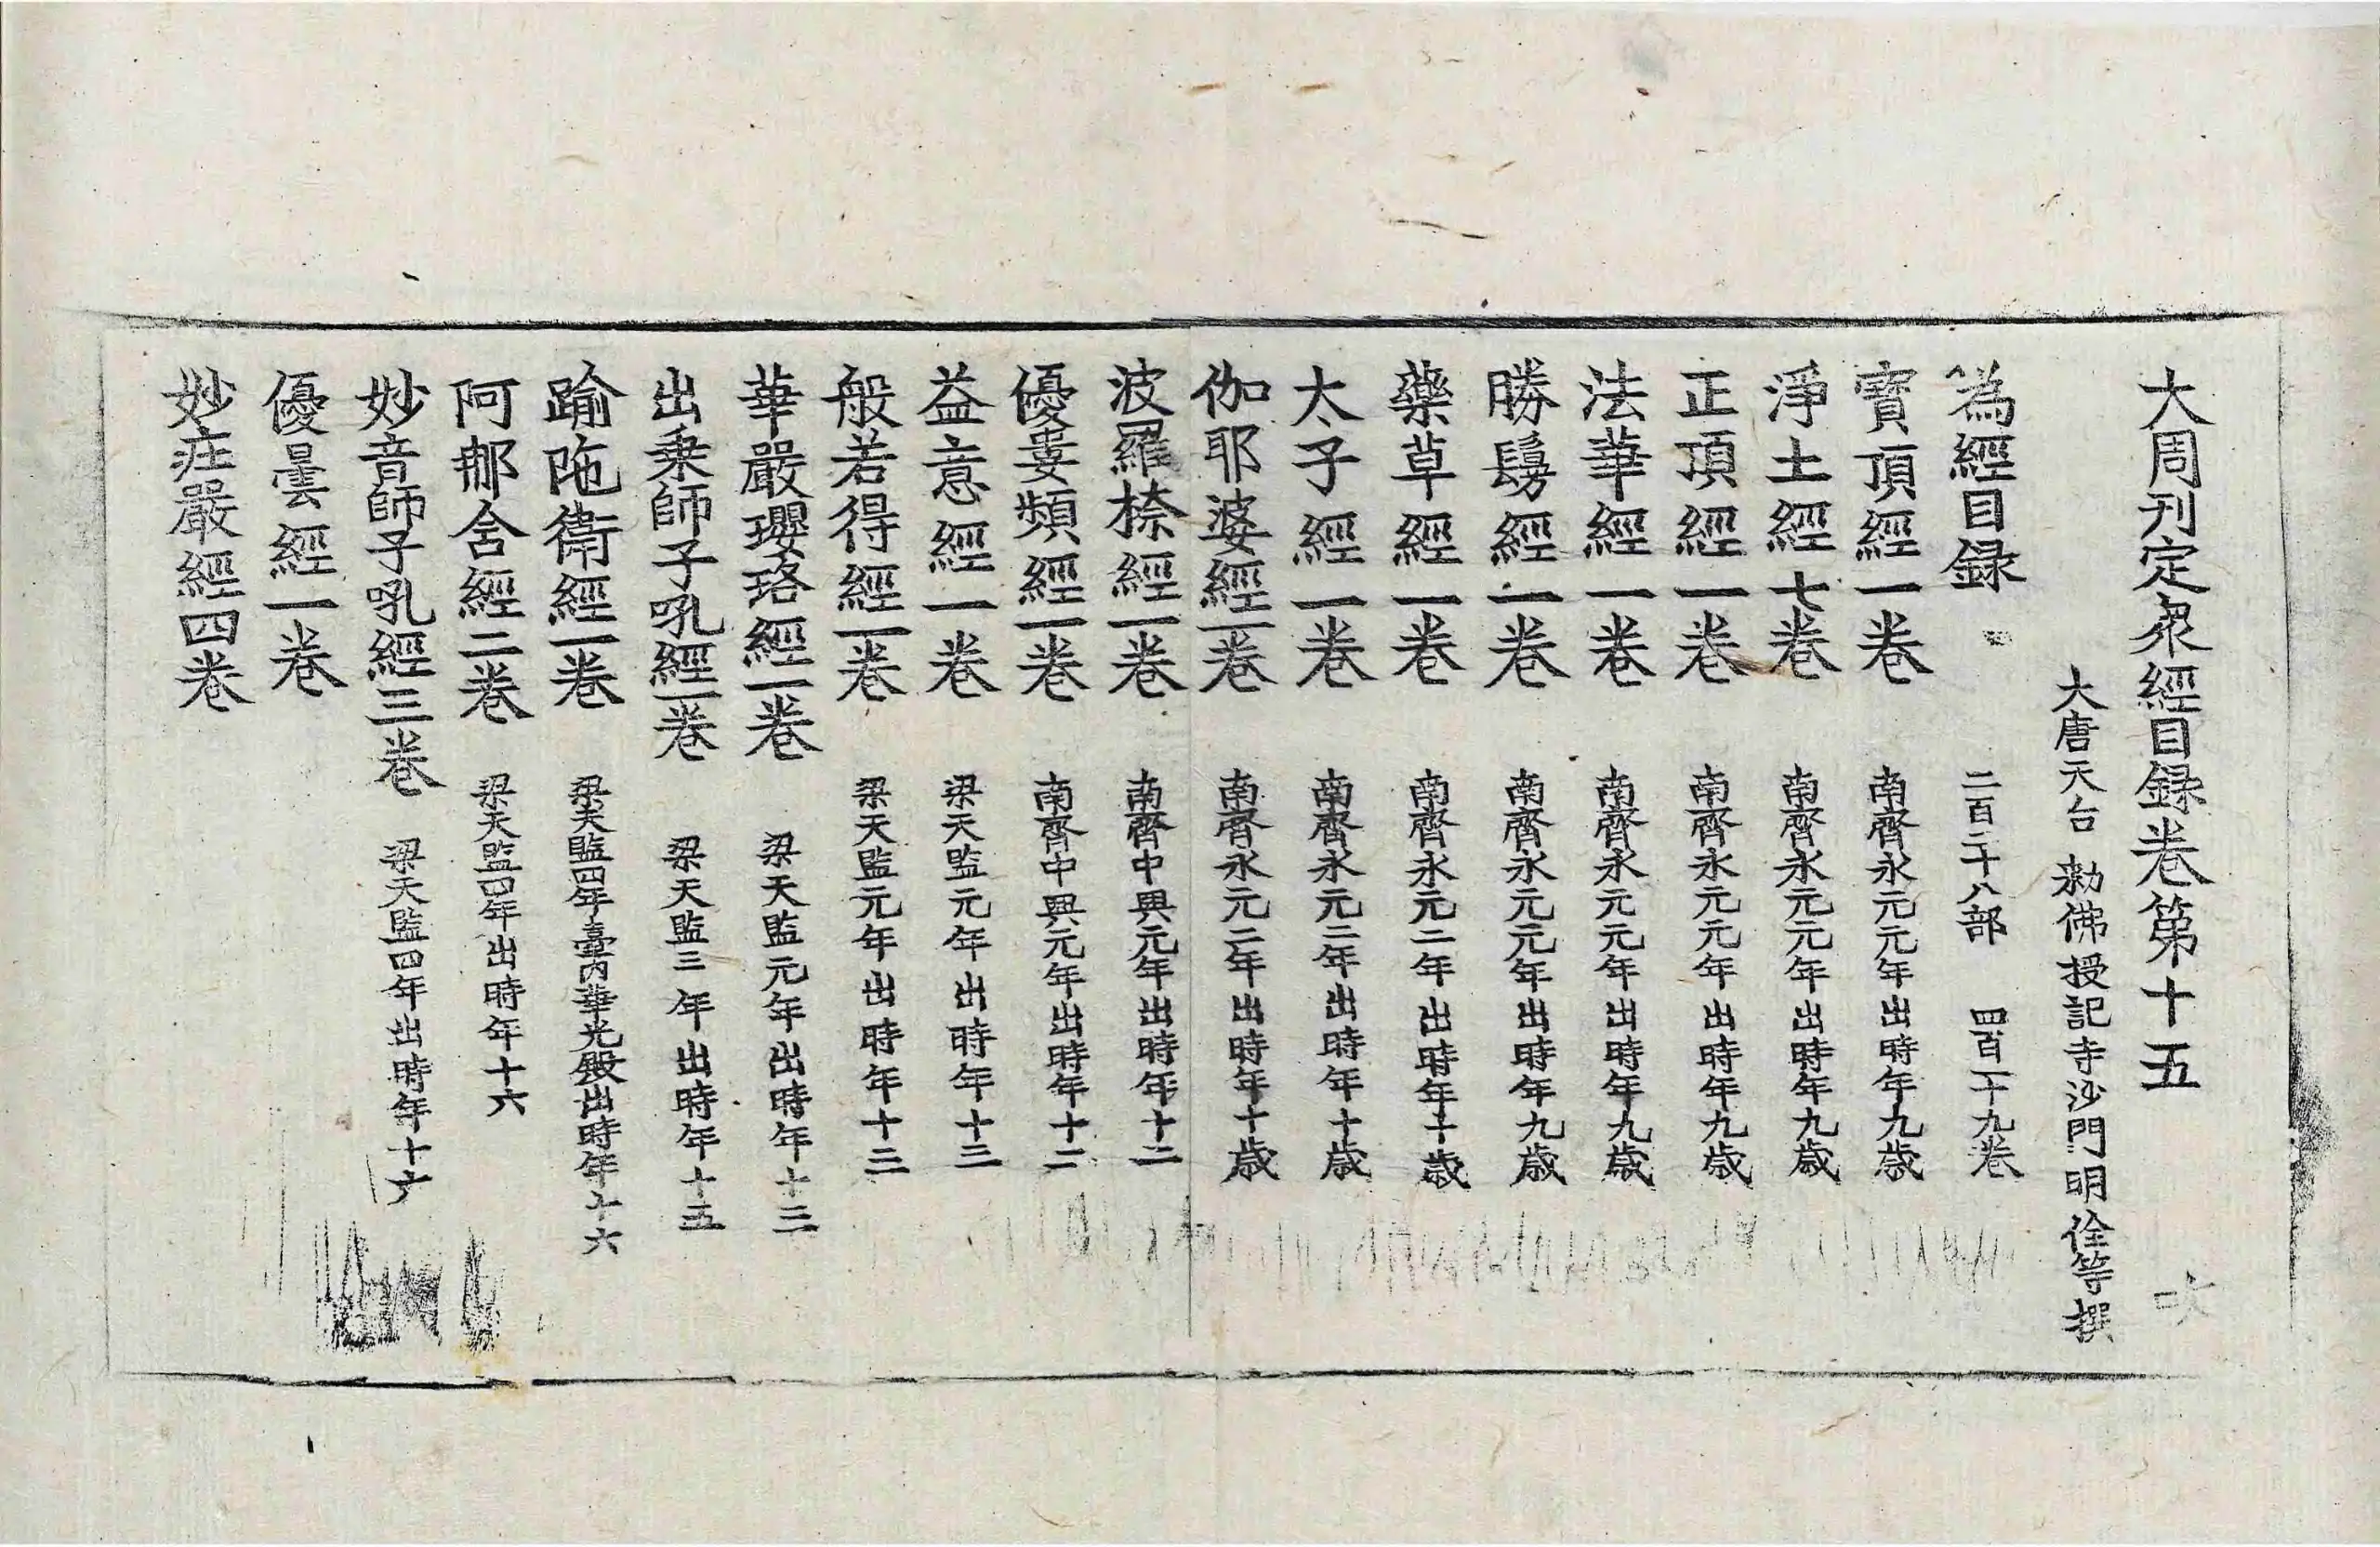 大周刊定衆經目録卷第十五
大唐天台 勑佛授記寺沙門明佺等撰
為經目録 二百二十八部 四百一十九卷
寳頂經一卷 南齊永元元年出時年九歳
淨土經七卷 南齊永元元年出時年九歳
正頂經一卷 南齊永元元年出時年九歳
法華經一卷 南齊永元元年出時年九歳
勝鬘經一卷 南齊永元元年出時年九歳
藥草經一卷 南齊永元二年出時年十歳
太子經一卷 南齊永元二年出時年十歳
伽耶婆經一卷 南齊永元二年出時年十歳
波羅㮈經一卷 南齊中興元年出時年十二
優婁頻經一卷 南齊中興元年出時年十二
益意經一卷 梁天監元年出時年十三
般若得經一卷 梁天監元年出時年十三
華嚴瓔珞經一卷 梁天監元年出時年十三
出乗師子吼經一卷 梁天監三年出時年十五
踰陁衛經一卷 梁天監四年臺内華光殿出時年十六
阿那含經二卷 梁天監四年出時年十六
妙音師子吼經三卷 梁天監四年出時年十六
優曇經一卷
妙莊嚴經四卷